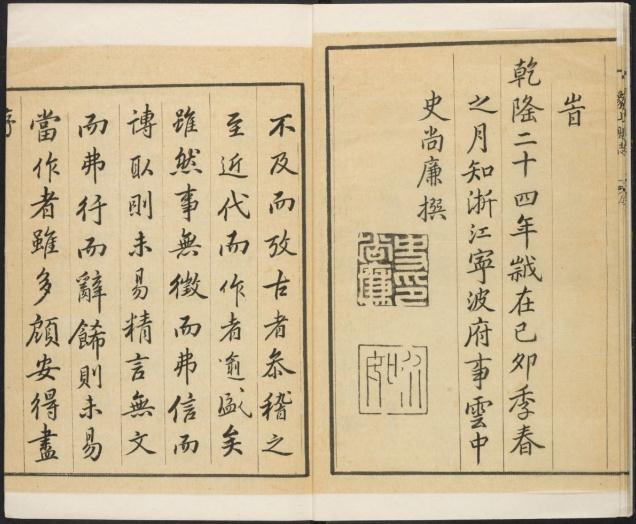 旹
乾隆二十四年歲在己卯季春
之月知浙江寧波府事雲中
史尚廉撰
史印尚廉
不及而攷古者叅稽之
至近代而作者逾盛矣
雖然事無徵而弗信而
博取則未易精言無文
而弗行而辭餙則未易
當作者雖多顧安得盡
序